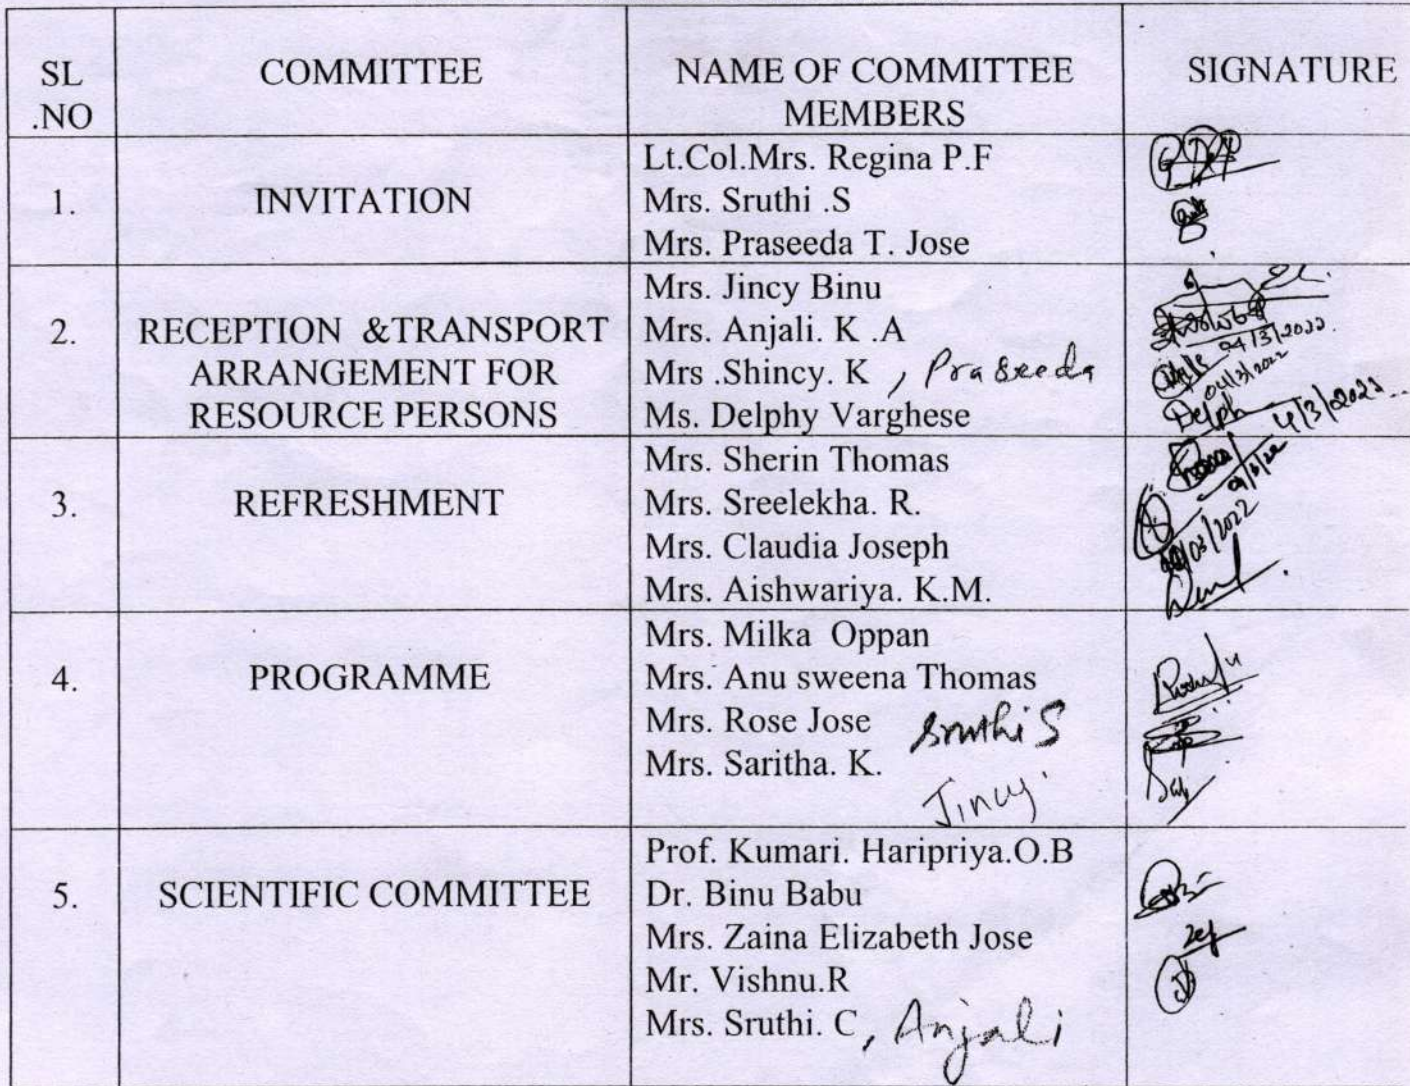 SL
.NO
COMMITTEE
NAME OF COMMITTEE
MEMBERS
SIGNATURE
1.
INVITATION
Lt.Col.Mrs. Regina P.F
Mrs. Sruthi .S
Mrs. Praseeda T. Jose
2.
RECEPTION &TRANSPORT
ARRANGEMENT FOR
RESOURCE PERSONS
Mrs. Jincy Binu
Mrs. Anjali. K .A
Mrs .Shincy. K , Praseeda
Ms. Delphy Varghese
04/3/2022.
04/3/2022
Delph
4/3/2022
3.
REFRESHMENT
Mrs. Sherin Thomas
Mrs. Sreelekha. R.
Mrs. Claudia Joseph
Mrs. Aishwariya. K.M.
4.
PROGRAMME
Mrs. Milka Oppan
Mrs. Anu sweena Thomas
Mrs. Rose Jose Sruthi S
Mrs. Saritha. K.
Jincy.
5.
SCIENTIFIC COMMITTEE
Prof. Kumari. Haripriya.O.B
Dr. Binu Babu
Mrs. Zaina Elizabeth Jose
Mr. Vishnu.R
Mrs. Sruthi. C , Anjali